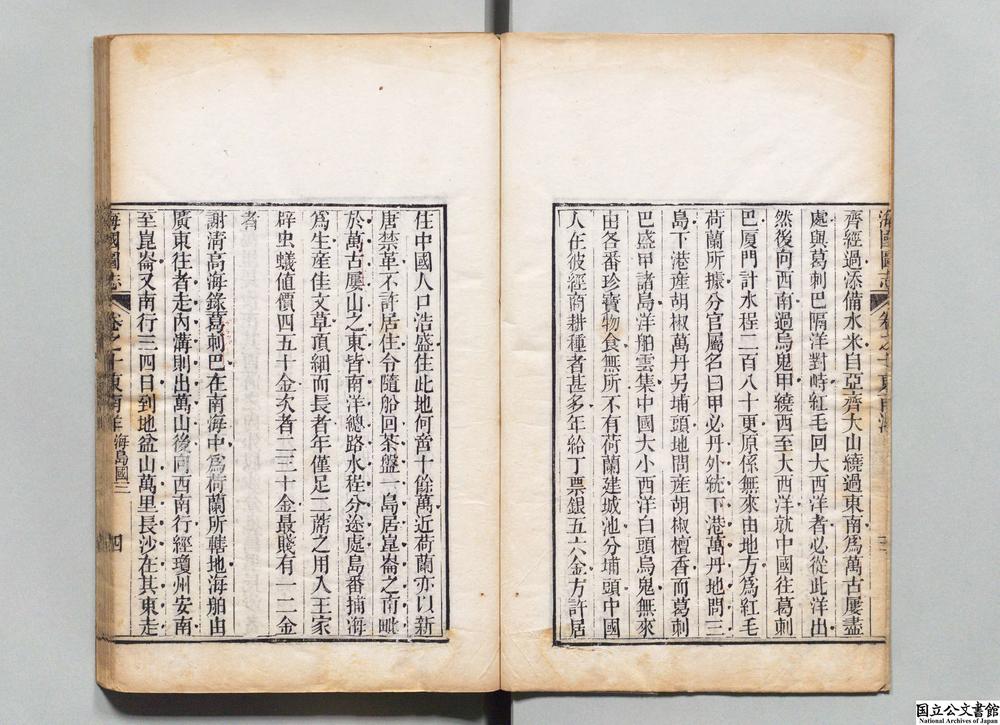 海國圖志 卷之十 東南洋
齊經過添備水米自亞齊大山繞過東南爲萬古屢盡
處與葛剌巴隔洋對峙紅毛回大西洋者必從此洋出
然後向西南過烏鬼甲繞西至大西洋就中國往葛剌
巴厦門計水程二百八十更原係無來由地方爲紅毛
荷蘭所據分官屬名曰甲必丹外統下港萬丹地問三
島下港産胡椒萬丹另埔頭地問産胡椒檀香而葛剌
巴盛甲諸島洋舶雲集中國大小西洋白頭烏鬼無來
由各番珍寶物食無所不有荷蘭建城池分埔頭中國
人在彼經商耕種者甚多年給丁票銀五六金方許居
住中國人口浩盛住此地何啻十餘萬近荷蘭亦以新
唐禁革不許居住令隨船回茶盤一島居崑崙之南毗
於萬古屢山之東皆南洋總路水程分途處島番捕海
爲生産佳文草頂細而長者年僅足二蓆之用入王家
辟虫蟻値價四五十金次者二三十金最賤有一二金
者
謝清高海錄葛剌巴在南海中爲荷蘭所轄地海舶由
廣東往者走內溝則出萬山後向西南行經瓊州安南
至崑崙又南行三四日到地盆山萬里長沙在其東走
海國圖志 卷之十 東南洋 海島國三 四
国立公文書館
National Archives of Japan